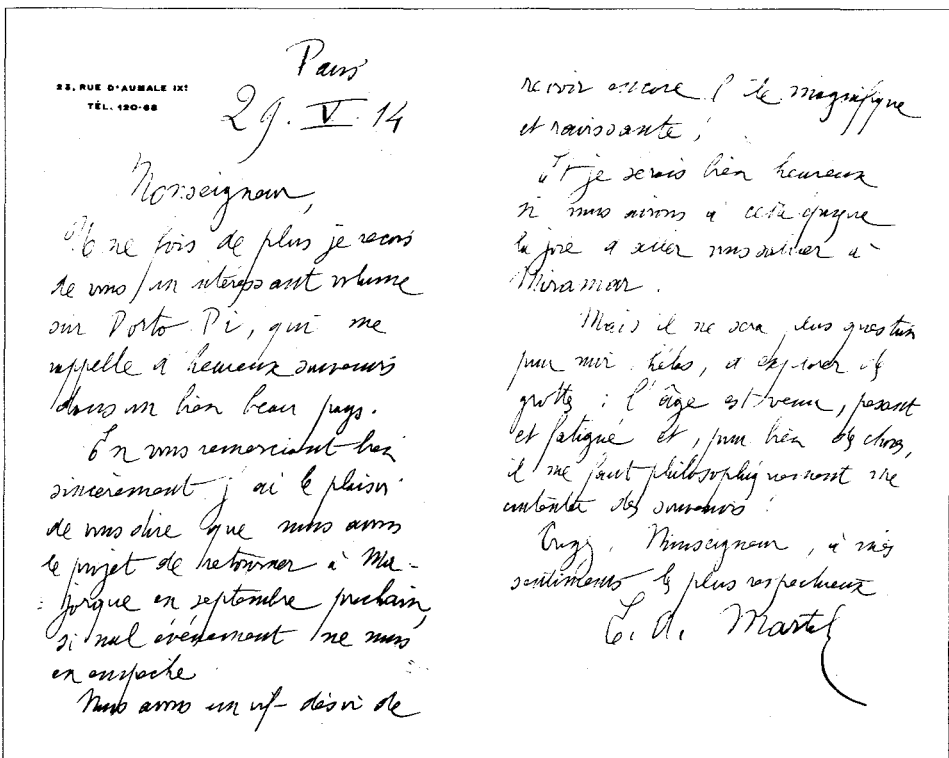 23, RUE D'AUMALE IXe
TÉL. 120-68
Paris
29. V. 14
Monseigneur,
Une fois de plus je reçois
de vous un intéressant volume
sur Porto Pi, qui me
rappelle d'heureux souvenirs
dans un bien beau pays.
En vous remerciant bien
sincèrement j'ai le plaisir
de vous dire que nous avons
le projet de retourner à Ma-
jorque en septembre prochain,
si nul événement ne nous
en empêche.
Nous avons un vif désir de
revoir encore l'île magnifique
et ravissante,
Et je serais bien heureux
si nous avions à cette époque
la joie d'aller vous saluer à
Miramar.
Mais il ne sera plus question
pour moi hélas, d'explorer des
grottes : l'âge est venu, pesant
et fatigué et, pour bien des choses,
il me faut philosophiquement me
contenter des souvenirs !
Croyez, Monseigneur, à mes
sentiments les plus respectueux
E. A. Martel